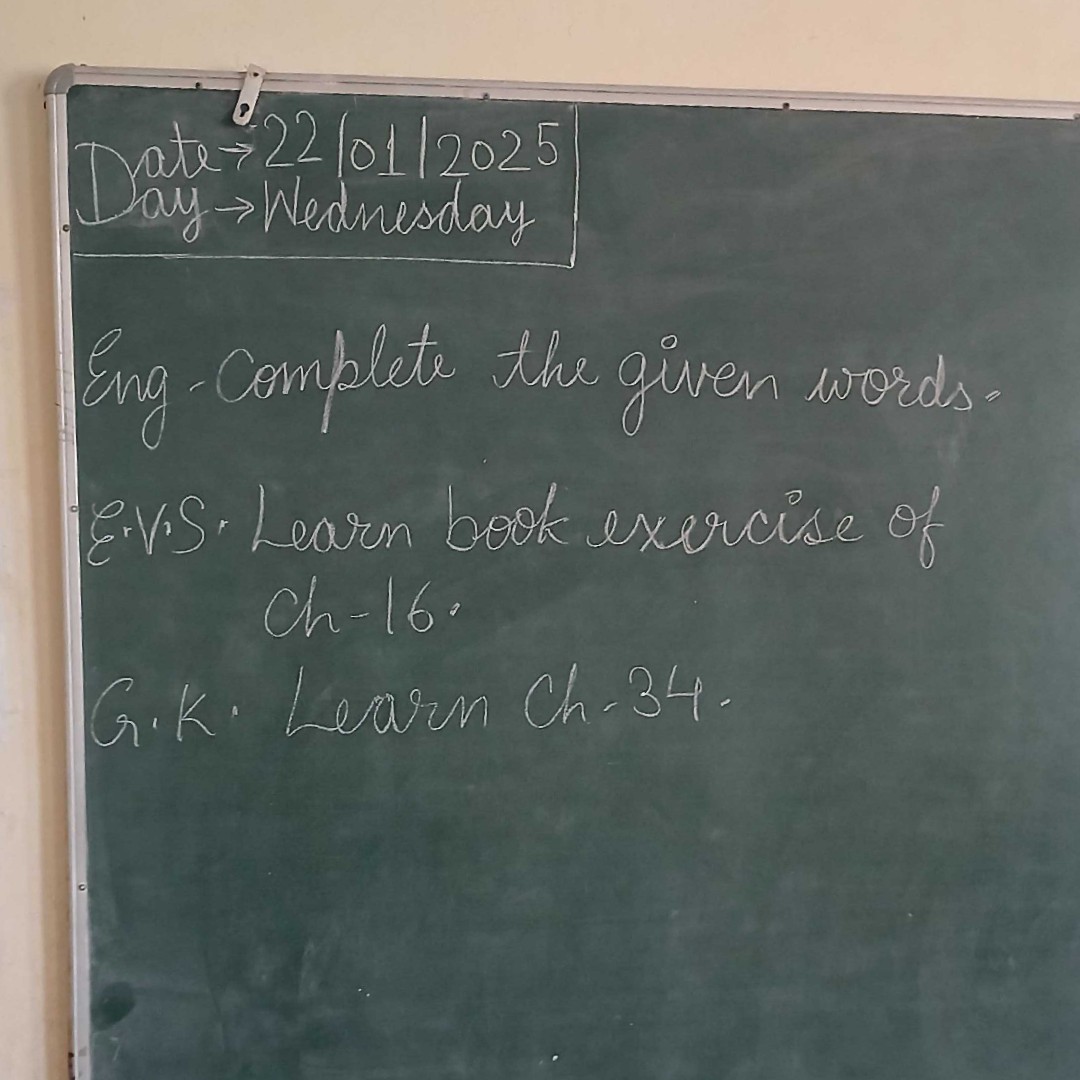 Date → 22/01/2025
Day → Wednesday
Eng - Complete the given words.
E.V.S. Learn book exercise of
Ch-16.
G.K. Learn Ch-34.